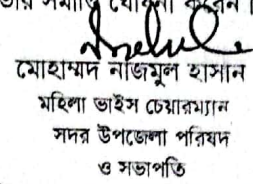 সমাপ্তি ঘোষনা করেন।
মোহাম্মদ নাজমুল হাসান
মহিলা ভাইস চেয়ারম্যান
সদর উপজেলা পরিষদ
ও সভাপতি